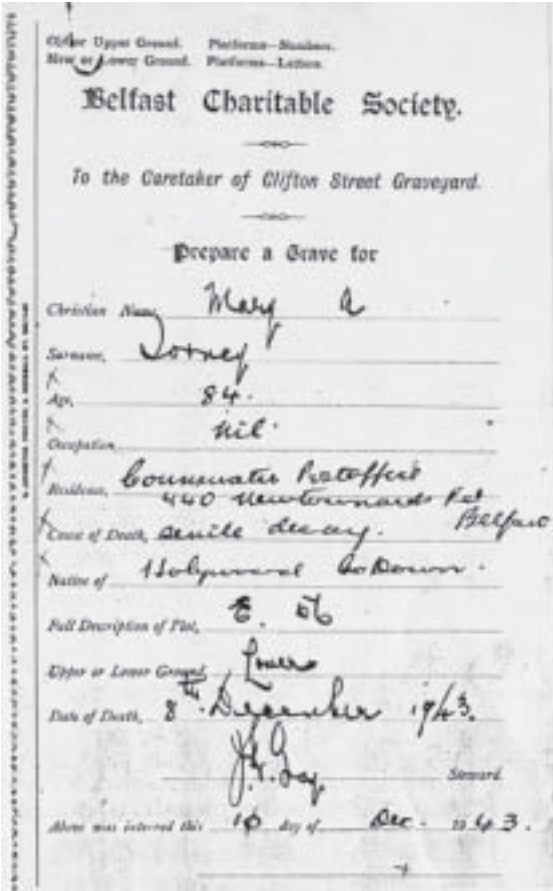 Old or Upper Ground. Platforms—Numbers.
New or Lower Ground. Platforms—Letters.
Belfast Charitable Society.
To the Caretaker of Clifton Street Graveyard.
Prepare a Grave for
Christian Name, Mary A
Surname, Torney
Age, 84.
Occupation, nil.
Residence,
440 Newtownards Rd
Belfast
Cause of Death, senile decay.
Native of Holywood Co Down.
Full Description of Plot, E.
Upper or Lower Ground, Lower
Date of Death, 8th December 1943.
Steward.
Above was interred this 10 day of Dec. 1943.